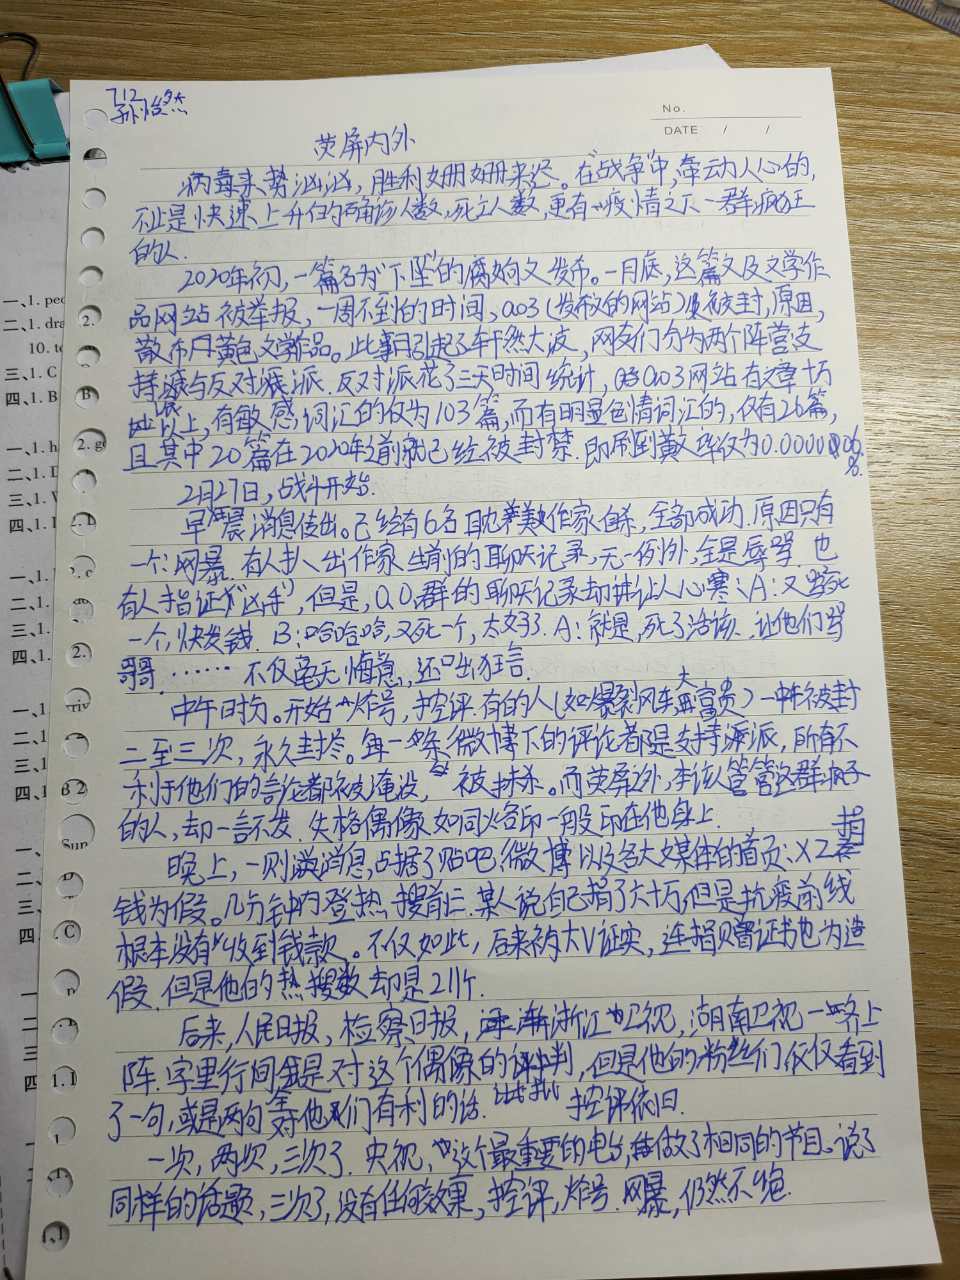 712
孙悠然
No.
DATE / /
荧屏内外
病毒来势汹汹，胜利姗姗来迟。在"战争"中，牵动人心的，
不止是快速上升的确诊人数，死亡人数，更有疫情之下一群疯狂
的人。
2020年初，一篇名为"下坠"的腐向文发布。一月底，这篇文及文学作
品网站被举报，一周不到的时间，ao3（发布文的网站）被封，原因，
散布黄色文学作品。此事引起了轩然大波，网友们分为两个阵营支
持派与反对派。反对派花了三天时间统计，ao3网站有文章十万
以上，有敏感词汇的仅为103篇，而有明显色情词汇的，仅有26篇，
且其中20篇在2020年之前就已经被封禁。即刷到黄文率仅为0.0000006
%。
2月27日，战斗开始。
早晨消息传出。已经有6名耽美作家自杀，全部成功。原因只有
一个：网暴。有人扒出作家生前的聊天记录，无一例外，全是辱骂。也
有人指证"凶手"，但是，QQ群的聊天记录却让人心寒：A：又死
一个，快发钱。B：哈哈哈，又死一个，太好了。A：就是，死了活该。让他们骂
哥哥。…… 不仅毫无悔意，还口出狂言。
中午时分。开始炸号，控评。有的人（如爆裂风车大富贵）一中午被封
二至三次，永久封禁。每一条微博下的评论都是支持派，所有不
利于他们的言论都被淹没，被抹杀。而荧屏外，本该管管这群疯子
的人，却一言不发。失格偶像如同烙印一般印在他身上。
晚上，一则消息占据了贴吧、微博以及各大媒体的首页：XZ捐
钱为假。几分钟内登热搜前三。某人说自己捐了六十万，但是抗疫前线
根本没有收到钱款。不仅如此，后来被大V证实，连捐赠证书也为造
假。但是他的热搜数却是211个。
后来，人民日报，检察日报，浙江卫视，湖南卫视一路上
阵。字里行间全是对这个偶像的批判，但是他的粉丝们仅仅看到
了一句，或是两句对他们有利的话。控评依旧。
一次，两次，三次了。央视，这个最重要的电台，做了相同的节目。说了
同样的话题，三次了，没有任何效果，控评，炸号。网暴，仍然不绝。